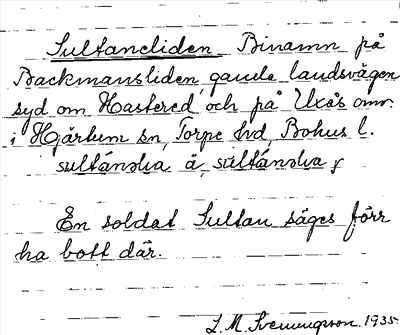 Sultaneliden Binamn på
Backmansliden, gamla landsvägen
syd om Hastered och på Uxås omr.
i Hjärtum sn, Torpe hd, Bohus l.
En soldat Sultan säges förr
ha bott där.
L. M. Svenungsson. 1935